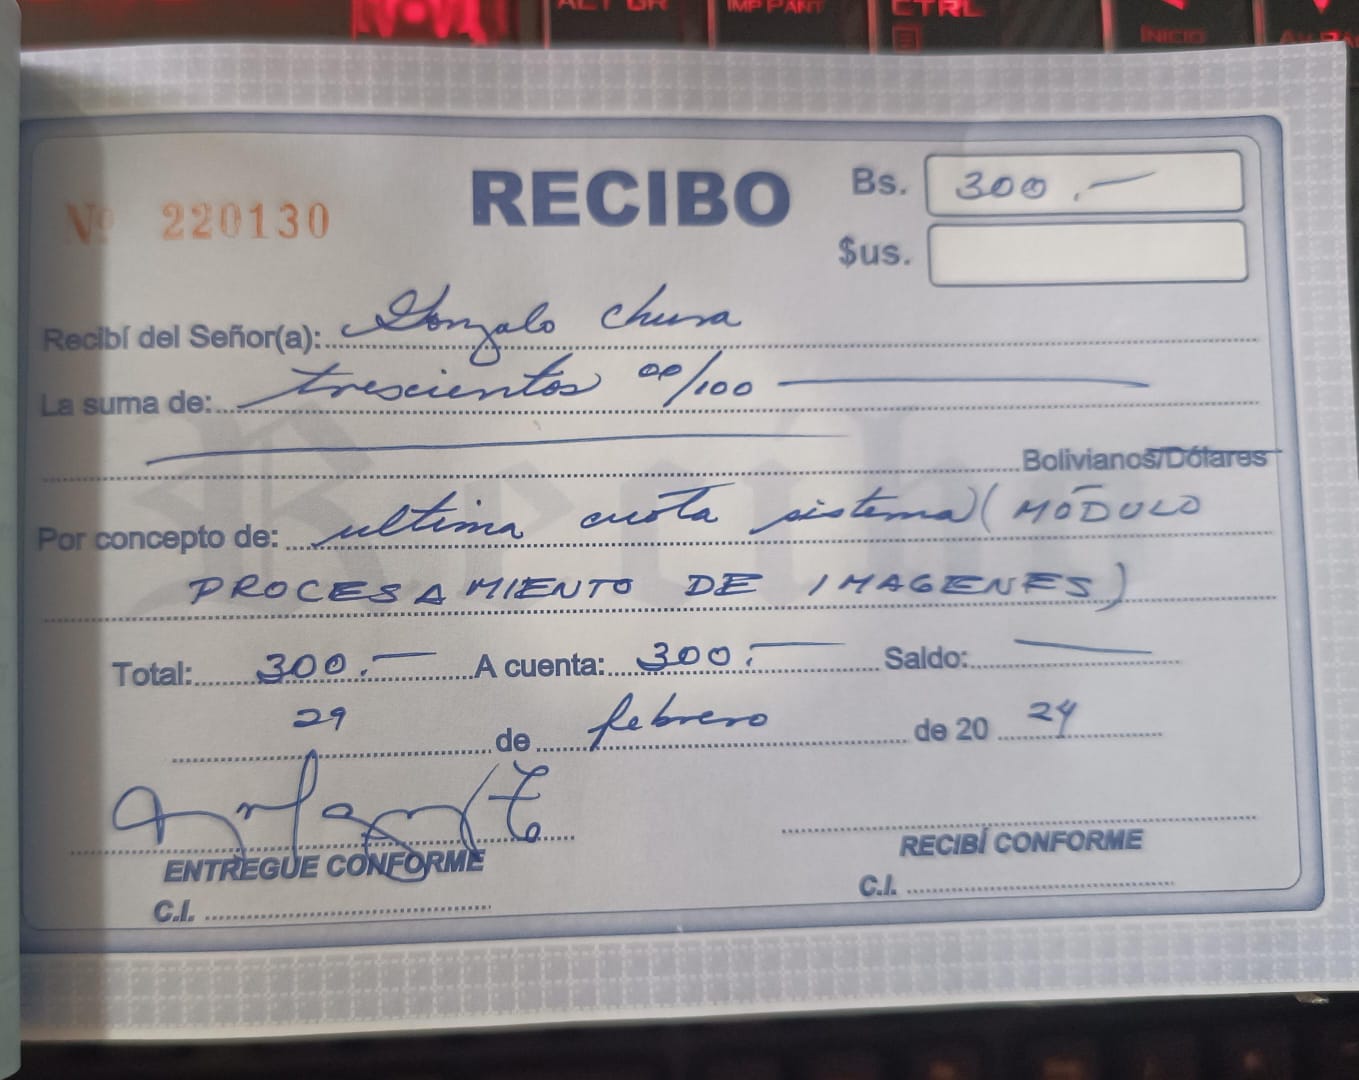 ALT GR
IMP PANT
CTRL
INICIO
Nº 220130
RECIBO
Bs. 300.—
$us.
Recibí del Señor(a): Gonzalo Chura
La suma de: trescientos 00/100
Bolivianos/Dólares
Por concepto de: ultima cuota sistema (MÓDULO
PROCESAMIENTO DE IMAGENES)
Total: 300.— A cuenta: 300.— Saldo: —
29 de febrero de 20 24
ENTREGUE CONFORME
RECIBÍ CONFORME
C.I.
C.I.